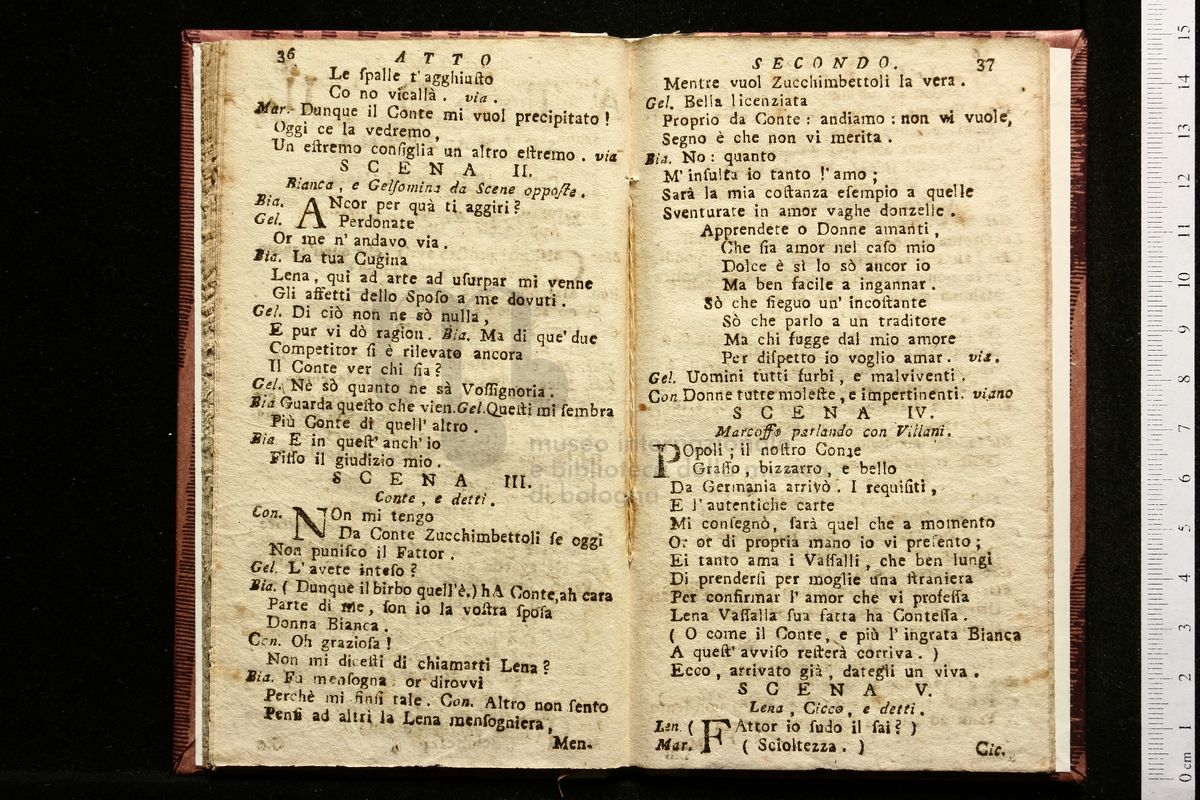 36 ATTO
Le ſpalle t' agghiuſto
Co no vicallà . via .
Mar. Dunque il Conte mi vuol precipitato !
Oggi ce la vedremo,
Un eſtremo conſiglia un altro eſtremo . via
SCENA II.
Bianca, e Gelſomina da Scene oppoſte.
Bia. ANcor per quà ti aggiri ?
Gel. Perdonate
Or me n' andavo via .
Bia. La tua Cugina
Lena, qui ad arte ad uſurpar mi venne
Gli affetti dello Spoſo a me dovuti .
Gel. Di ciò non ne sò nulla,
E pur vi dò ragion. Bia. Ma di que' due
Competitor ſi è rilevato ancora
Il Conte ver chi ſia ?
Gel. Nè sò quanto ne sà Voſſignoria.
Bia Guarda queſto che vien. Gel. Queſti mi ſembra
Più Conte di quell' altro .
Bia E in queſt' anch' io
Fiſſo il giudizio mio .
SCENA III.
Conte, e detti.
Con. NOn mi tengo
Da Conte Zucchimbettoli ſe oggi
Non puniſco il Fattor .
Gel. L' avete inteſo ?
Bia. ( Dunque il birbo quell'è.) hA Conte,ah cara
Parte di me, ſon io la voſtra ſpoſa
Donna Bianca.
Con. Oh grazioſa !
Non mi diceſti di chiamarti Lena ?
Bia. Fu menſogna: or dirovvi
Perchè mi finſi tale. Con. Altro non ſento
Penſi ad altri la Lena menſogniera,
Men-
SECONDO. 37
Mentre vuol Zucchimbettoli la vera .
Gel. Bella licenziata
Proprio da Conte : andiamo : non vi vuole,
Segno è che non vi merita .
Bia. No : quanto
M' inſulta io tanto l' amo ;
Sarà la mia coſtanza eſempio a quelle
Sventurate in amor vaghe donzelle .
Apprendete o Donne amanti,
Che ſia amor nel caſo mio
Dolce è sì lo sò ancor io
Ma ben facile a ingannar .
Sò che ſieguo un' incoſtante
Sò che parlo a un traditore
Ma chi fugge dal mio amore
Per diſpetto io voglio amar. via.
Gel. Uomini tutti furbi, e malviventi .
Con Donne tutte moleſte, e impertinenti. viano
SCENA IV.
Marcoffo parlando con Villani.
POpoli ; il noſtro Conte
Graſſo, bizzarro, e bello
Da Germania arrivò . I requiſiti,
E l' autentiche carte
Mi conſegnò, ſarà quel che a momento
Or or di propria mano io vi preſento ;
Ei tanto ama i Vaſſalli, che ben lungi
Di prenderſi per moglie una ſtraniera
Per confirmar l' amor che vi profeſſa
Lena Vaſſalla ſua fatta ha Conteſſa.
( O come il Conte, e più l' ingrata Bianca
A queſt' avviſo reſterà corriva. )
Ecco, arrivato già, dategli un viva .
SCENA V.
Lena, Cicco, e detti.
Len. ( FAttor io ſudo il ſai? )
Mar. ( Scioltezza. )
Cic.
museo internazionale
e biblioteca della musica
di bologna
0 cm 1 2 3 4 5 6 7 8 9 10 11 12 13 14 15